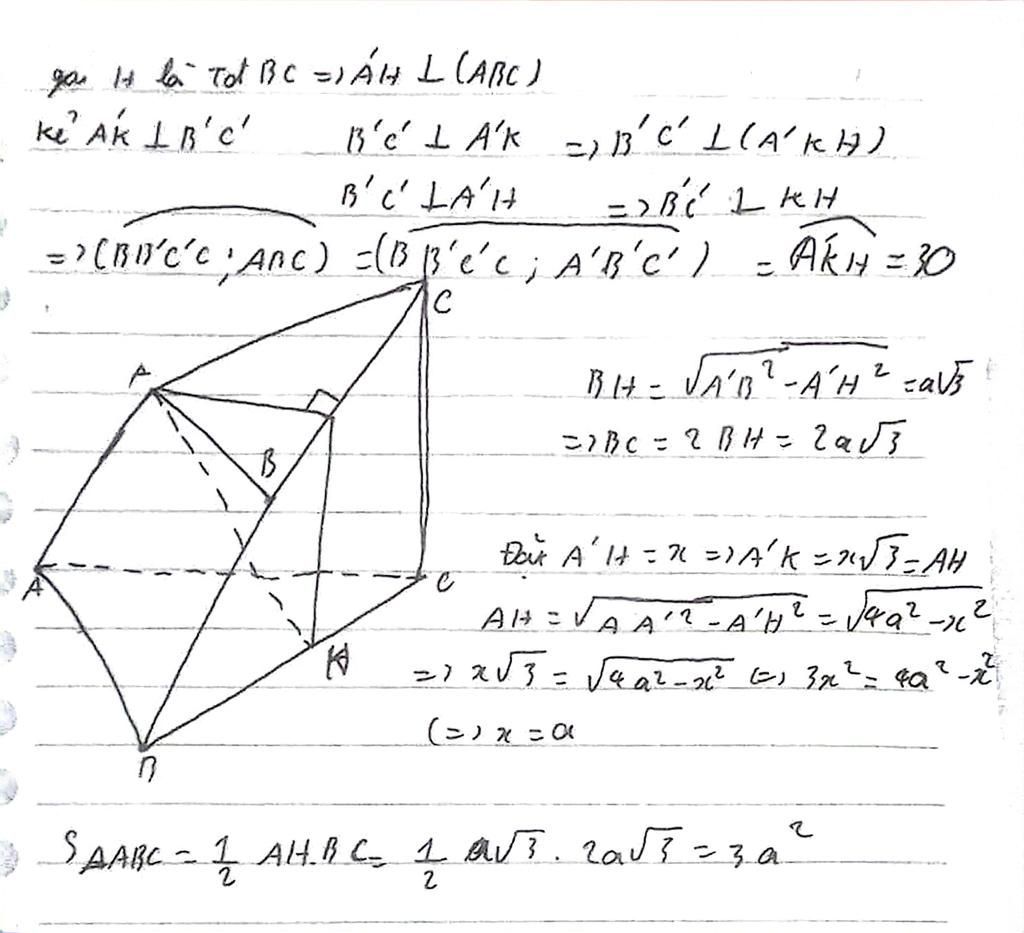 gọi H là Tđ BC => A'H ⊥ (ABC)
kẻ A'K ⊥ B'C' B'C' ⊥ A'K => B'C' ⊥ (A'KH)
B'C' ⊥ A'H => B'C' ⊥ KH
=> (BB'C'C; ABC) = (BB'C'C; A'B'C') = A'KH = 30
C
A
BH = √A'B² - A'H² = a√3
=> BC = 2BH = 2a√3
B
Đặt A'H = x => A'K = x√3 = AH
A
C
AH = √AA'² - A'H² = √4a² - x²
H
=> x√3 = √4a² - x² (=) 3x² = 4a² - x²
(=) x = a
B
S∆ABC = 1/2 AH.BC = 1/2 a√3 . 2a√3 = 3a²